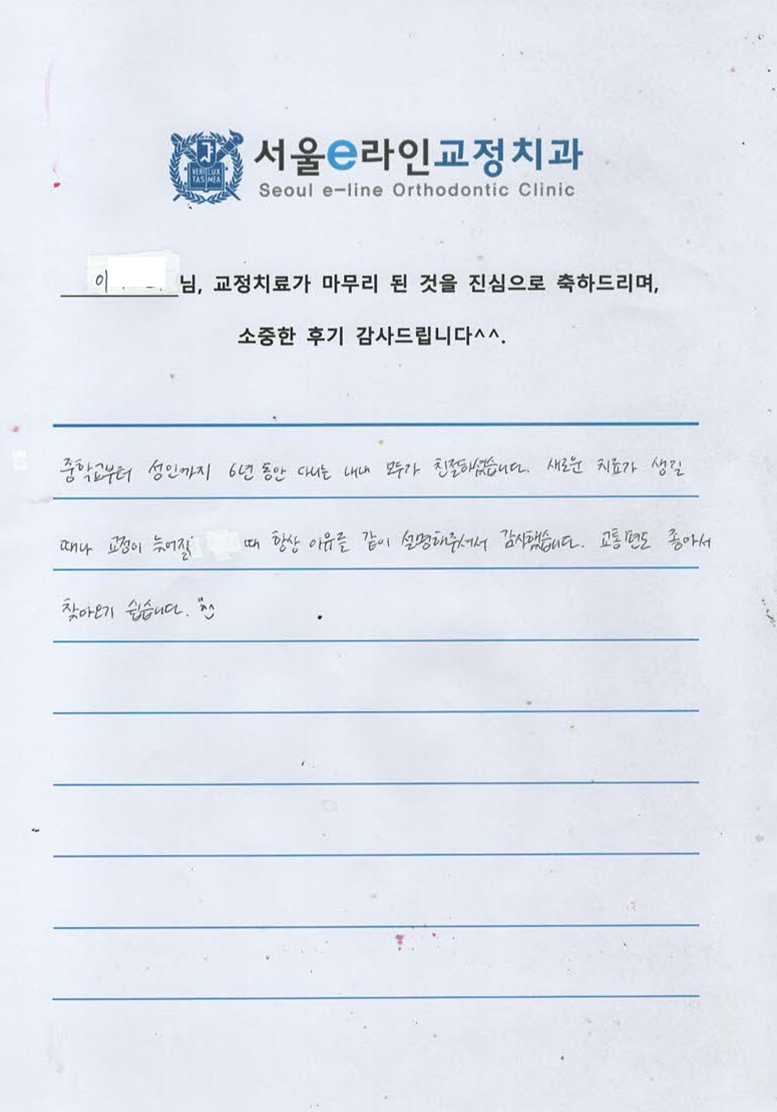 서울e라인교정치과
VERI LUX
TAS MEA
Seoul e-line Orthodontic Clinic
이 님, 교정치료가 마무리 된 것을 진심으로 축하드리며,
소중한 후기 감사드립니다^^.
중학교부터 성인까지 6년 동안 다니는 내내 모두가 친절하셨습니다. 새로운 치료가 생길
때나 교정이 늦어질 때 항상 이유를 같이 설명해주셔서 감사했습니다. 교통편도 좋아서
찾아오기 쉽습니다. ^^